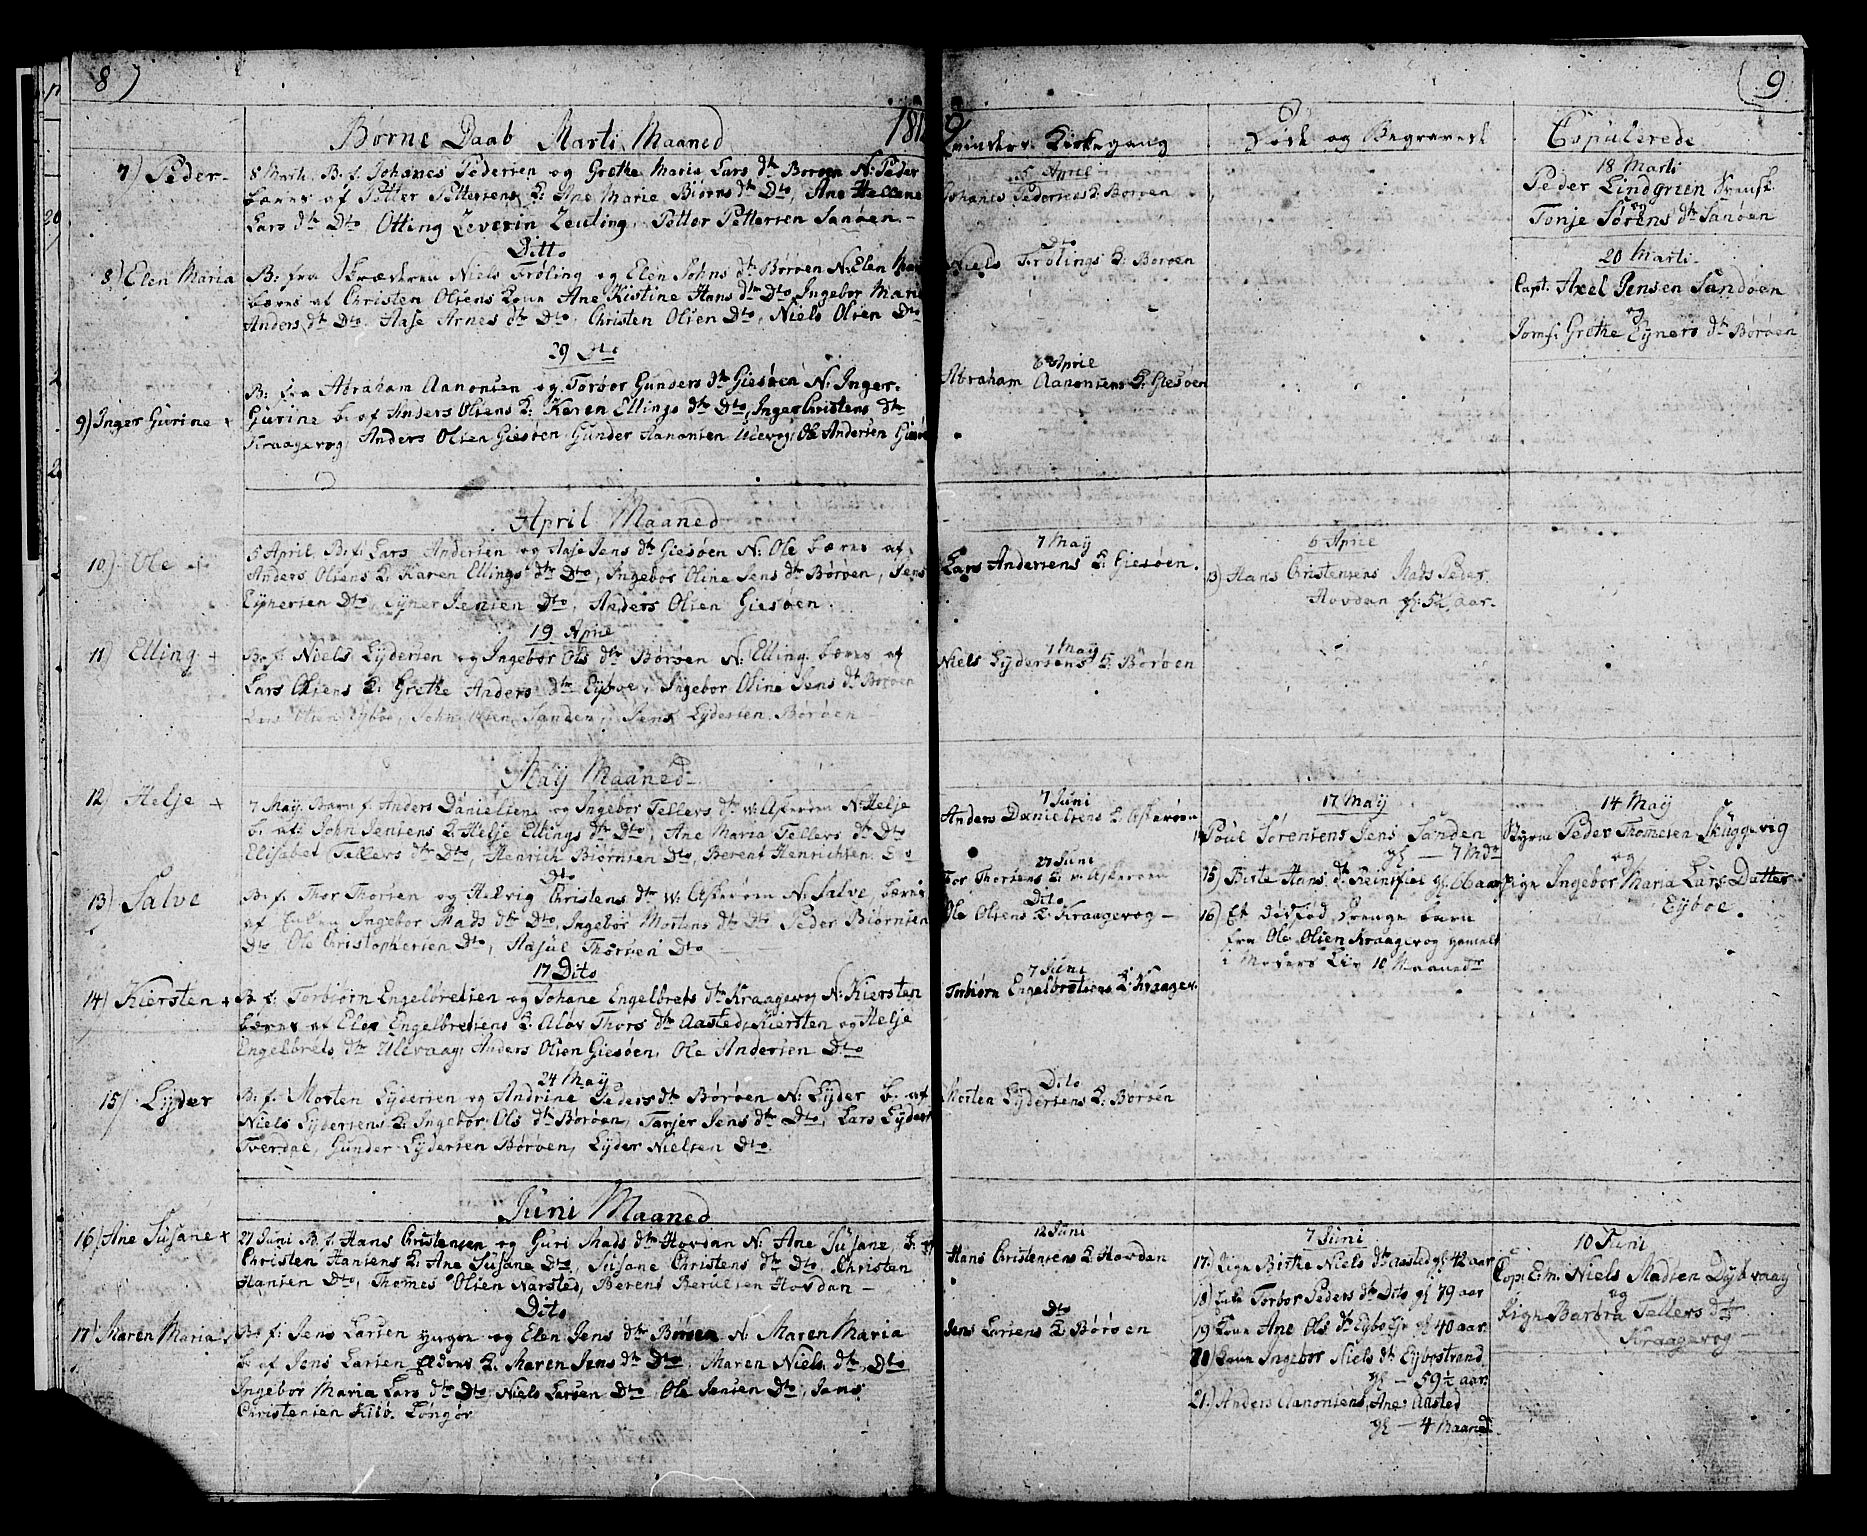 8)
Børne Daab Marti Maaned 181
7) Peder 8 Marti B. f. Johanes Pedersen og Grethe Maria Lars dtr Borøen N: Peder
bæres af Petter Pettersens K: Ane Marie Biørns dtr Dto, Ane Hellene
Lars dtr Dto Otting Zeverin Zeuling, Petter Pettersen Sanøen.
Ditto
8) Elen Maria B: fra Skræderen Niels Frøling og Elen Johns dtr Børøen N: Elen Mar
bæres af Christen Olsens Kone Ane Kistine Hans dtr Dto, Ingebor Marie
Anders dtr Dto. Aase Arnes dtr Dto, Christen Olsen Dto, Niels Olsen Dto
29 Dto
B: fra Abraham Aanonsen og Torbor Gunders dtr Giesøen N: Inger.
9) Inger Gurine Gurine b. af Anders Olsens K: Karen Ellings dtr Dto, Inger Christens dtr
Kraagevog Anders Olsen Giesøen Gunder Aanonsen Ulevog, Ole Andersen Giesø
April Maaned
10) Ole 5 April B. f: Lars Andersen og Aase Jens dtr Giesøen N: Ole bæres af
Anders Olsens K: Karen Ellings dtr Dto, Ingebor Oline Jens dtr Børøen, Jens
Eynersen Dto, Eyner Jensen Dto, Anders Olsen Giesøen.
19 April
11) Elling + B. f. Niels Eydersen og Ingebor Ols dtr Børøen N: Elling bæres af
Lars Olsens K: Grethe Anders dtr Eyboe, Ingebor Oline Jens dtr Børøen
Lars Olsen Eyboe, John Olsen Sanden, Jens Eydersen Børøen
May Maaned
12) Helje + 7 May. Barn f. Anders Danielsen og Ingebor Tellers dtr w: Askerøen N: Helje
b. af: John Jensens K: Helje Ellings dtr Dto, Ane Maria Tellers dtr Dto
Elisabet Tellers dtr Dto, Henrich Biørnsen Dto, Berent Henrichsen Dto
Dto
13) Salve B. f. Thor Thorsen og Helvig Christens dtr w: Askerøen N: Salve, bæres
af Enken Ingebor Mads dtr Dto, Ingebor Mortens dtr Dto Peder Biørnsen
Dto Ole Christophersen Dto, Aasul Thorsen Dto
17 Dito
14) Kiersten + B f: Torbiørn Engelbretsen og Johane Engelbrets dtr Kraagevog N: Kiersten
bæres af Elev Engelbretsens K: Aløv Thors dtr Aasted, Kiersten og Helje
Engelbrets dtr Ulevaag, Anders Olsen Giesøen, Ole Andersen Dto
24 May
15) Eyder B. f: Morten Eydersen og Andrine Peders dtr Børøen N: Eyder b. af
Niels Eydersens K: Ingebor Ols dtr Børøen, Tarjer Jens dtr Dto, Lars Eyders
Tverdal, Gunder Eydersen Børøen, Eyder Nielsen Dto.
Juni Maaned
16) Ane Susane + 27 Juni B. f. Hans Christensen og Guri Mads dtr Hovdan N: Ane Susane, b. af
Christen Hansens K: Ane Susane Dto, Susane Christens dtr Dto, Christen
Hansen Dto, Thomes Olsen Narsted, Berens Berulsen Hovdan
Dito
17) Maren Maria B. f: Jens Larsen yngre og Elen Jens dtr Børøen N: Maren Maria
b. af Jens Larsen eldres K. Maren Jens dtr Dto, Maren Niels dtr Dto
Ingebor Maria Lars dtr Dto, Niels Larsen Dto, Ole Jensen Dto, Jens
Christensen Kilø. Longør
(9
Kvinders Kirkegang
5 April
Johanes Pedersens K Børøen
Dto
Niels Frølings K: Børøen
6 April
Abraham Aanonsens K: Giesøen
7 May
Lars Andersens K: Giesøen.
7 May
Niels Eydersens K: Børøen
7 Juni
Anders Danielsens K Askerøen
27 Juni
Tor Thorsens K w: Askerøen
Dito
Ole Olsens K Kraagevog
7 Juni
Torbiørn Engelbretsens K: Kraagev.
Dito
Morten Eydersens K: Børøen
12 Juni
Hans Christensens K Hovdan
Dto
Jens Larsens K Børøen
Døde og Begravede
6 April
13) Hans Christensens Mads Peder
Hovdan gl: 5½ aar.
17 May
Poul Sørensens Jens Sanden
gl – 7 Mdr
15) Birte Hans dtr Reinsfiel gl. 66 aar
16) Et dødfød Drenge barn
fra Ole Olsen Kraagevog gamelt
i Moders Liv 10 Maaneder
7 Juni
17.) Pign Birthe Niels dtr Aasted gl 42 aar
18) Enke Torbor Peders dtr Dito gl 79 aar
19) Kone Ane Ols dtr Eyboe gl 40 aar
20) Kone Ingebor Niels dtr Eybostrand
gl – 59½ aar.
21.) Anders Aanonsens, Ane Aasted
gl – 4 Maaned
Copulerede
18 Marti
Peder Lindgrien Svensk
og
Tonje Sørens dtr Sanøen
20 Marti
Capt. Axel Jensen Sandøen
og
Jomf: Grethe Eyners dtr Børøen
14 May
Styrm Peder Thomesen Skuggevig
og
Pign Ingebor Maria Lars Datter
Eyboe.
10 Juni
Cop: Em. Niels Madsen Dybvaag
og
Pign Barbra Tellers dtr
Kraagevog